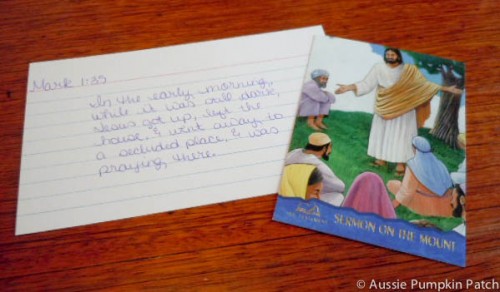 Mark 1:35
In the early morning,
while it was still dark,
Jesus got up, left the
house, & went away to
a secluded place, & was
praying there.
SERMON ON THE MOUNT
© Aussie Pumpkin Patch